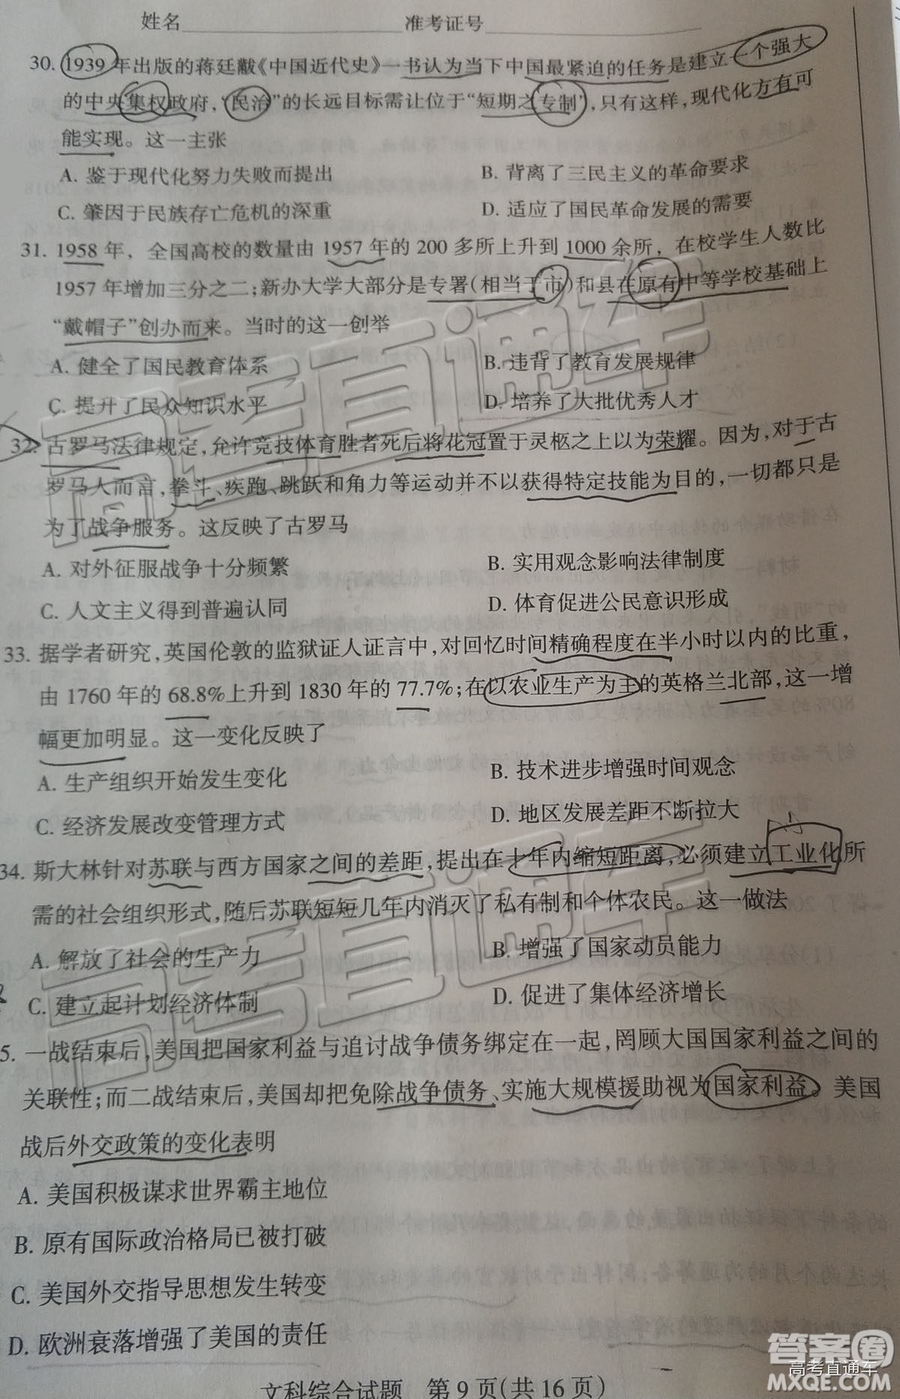 姓名 准考证号
30. 1939年出版的蒋廷黻《中国近代史》一书认为当下中国最紧迫的任务是建立一个强大
的中央集权政府，“民治”的长远目标需让位于“短期之专制”，只有这样，现代化方有可
能实现。这一主张
A. 鉴于现代化努力失败而提出 B. 背离了三民主义的革命要求
C. 肇因于民族存亡危机的深重 D. 适应了国民革命发展的需要
31. 1958年，全国高校的数量由1957年的200多所上升到1000余所，在校学生人数比
1957年增加三分之二；新办大学大部分是专署（相当于市）和县在原有中等学校基础上
“戴帽子”创办而来。当时的这一创举
A. 健全了国民教育体系 B. 违背了教育发展规律
C. 提升了民众知识水平 D. 培养了大批优秀人才
32. 古罗马法律规定，允许竞技体育胜者死后将花冠置于灵柩之上以为荣耀。因为，对于古
罗马人而言，拳斗、疾跑、跳跃和角力等运动并不以获得特定技能为目的，一切都只是
为了战争服务。这反映了古罗马
A. 对外征服战争十分频繁 B. 实用观念影响法律制度
C. 人文主义得到普遍认同 D. 体育促进公民意识形成
33. 据学者研究，英国伦敦的监狱证人证言中，对回忆时间精确程度在半小时以内的比重，
由1760年的68.8%上升到1830年的77.7%；在以农业生产为主的英格兰北部，这一增
幅更加明显。这一变化反映了
A. 生产组织开始发生变化 B. 技术进步增强时间观念
C. 经济发展改变管理方式 D. 地区发展差距不断拉大
34. 斯大林针对苏联与西方国家之间的差距，提出在十年内缩短距离，必须建立工业化所
需的社会组织形式，随后苏联短短几年内消灭了私有制和个体农民。这一做法
A. 解放了社会的生产力 B. 增强了国家动员能力
C. 建立起计划经济体制 D. 促进了集体经济增长
5. 一战结束后，美国把国家利益与追讨战争债务绑定在一起，罔顾大国国家利益之间的
关联性；而二战结束后，美国却把免除战争债务、实施大规模援助视为国家利益。美国
战后外交政策的变化表明
A. 美国积极谋求世界霸主地位
B. 原有国际政治格局已被打破
C. 美国外交指导思想发生转变
D. 欧洲衰落增强了美国的责任
文科综合试题 第9页（共16页）
高考直通车
答案圈
高考直通车
MXQE.COM